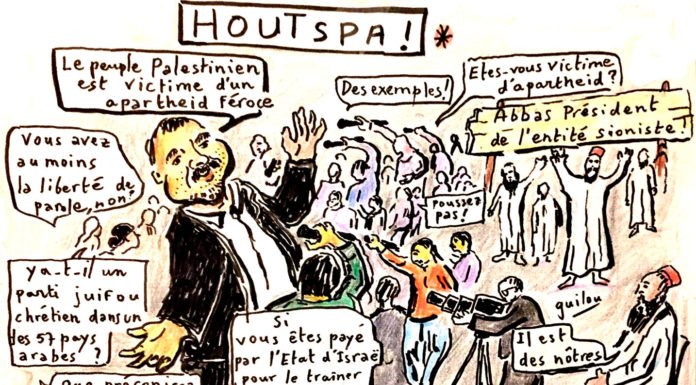 HOUTSPA! *
Le peuple Palestinien
est victime d'un
apartheid féroce
Des exemples!
Etes-vous victime
d'apartheid?
Abbas Président
de l'entité sioniste!
Vous avez
au moins
la liberté de
parole, non?
Poussez
pas!
ya-t-il un
parti juif ou
chrétien dans un
des 57 pays
arabes"?
Si
vous êtes payé
par l'Etat d'Israë
pour le trainer
guilou
Il est
des nôtres